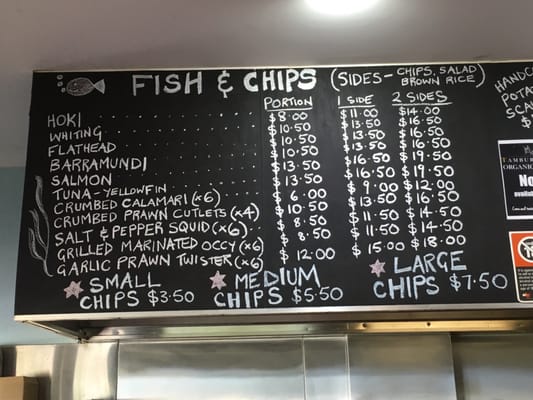 FISH & CHIPS (SIDES - CHIPS, SALAD, BROWN RICE)
PORTION 1 SIDE 2 SIDES
HOKI $8.00 $11.00 $14.00
WHITING $10.50 $13.50 $16.50
FLATHEAD $10.50 $13.50 $16.50
BARRAMUNDI $10.50 $13.50 $16.50
SALMON $13.50 $16.50 $19.50
TUNA - YELLOWFIN $13.50 $16.50 $19.50
CRUMBED CALAMARI (x6) $6.00 $9.00 $12.00
CRUMBED PRAWN CUTLETS (x4) $10.50 $13.50 $16.50
SALT & PEPPER SQUID (x6) $8.50 $11.50 $14.50
GRILLED MARINATED OCCY (x6) $8.50 $11.50 $14.50
GARLIC PRAWN TWISTER (x6) $12.00 $15.00 $18.00
SMALL CHIPS $3.50
MEDIUM CHIPS $5.50
LARGE CHIPS $7.50